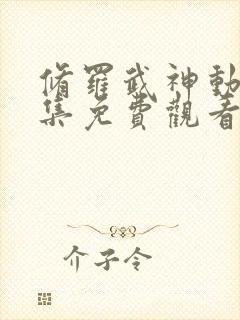 脩羅武神動
集免費觀看
介子令